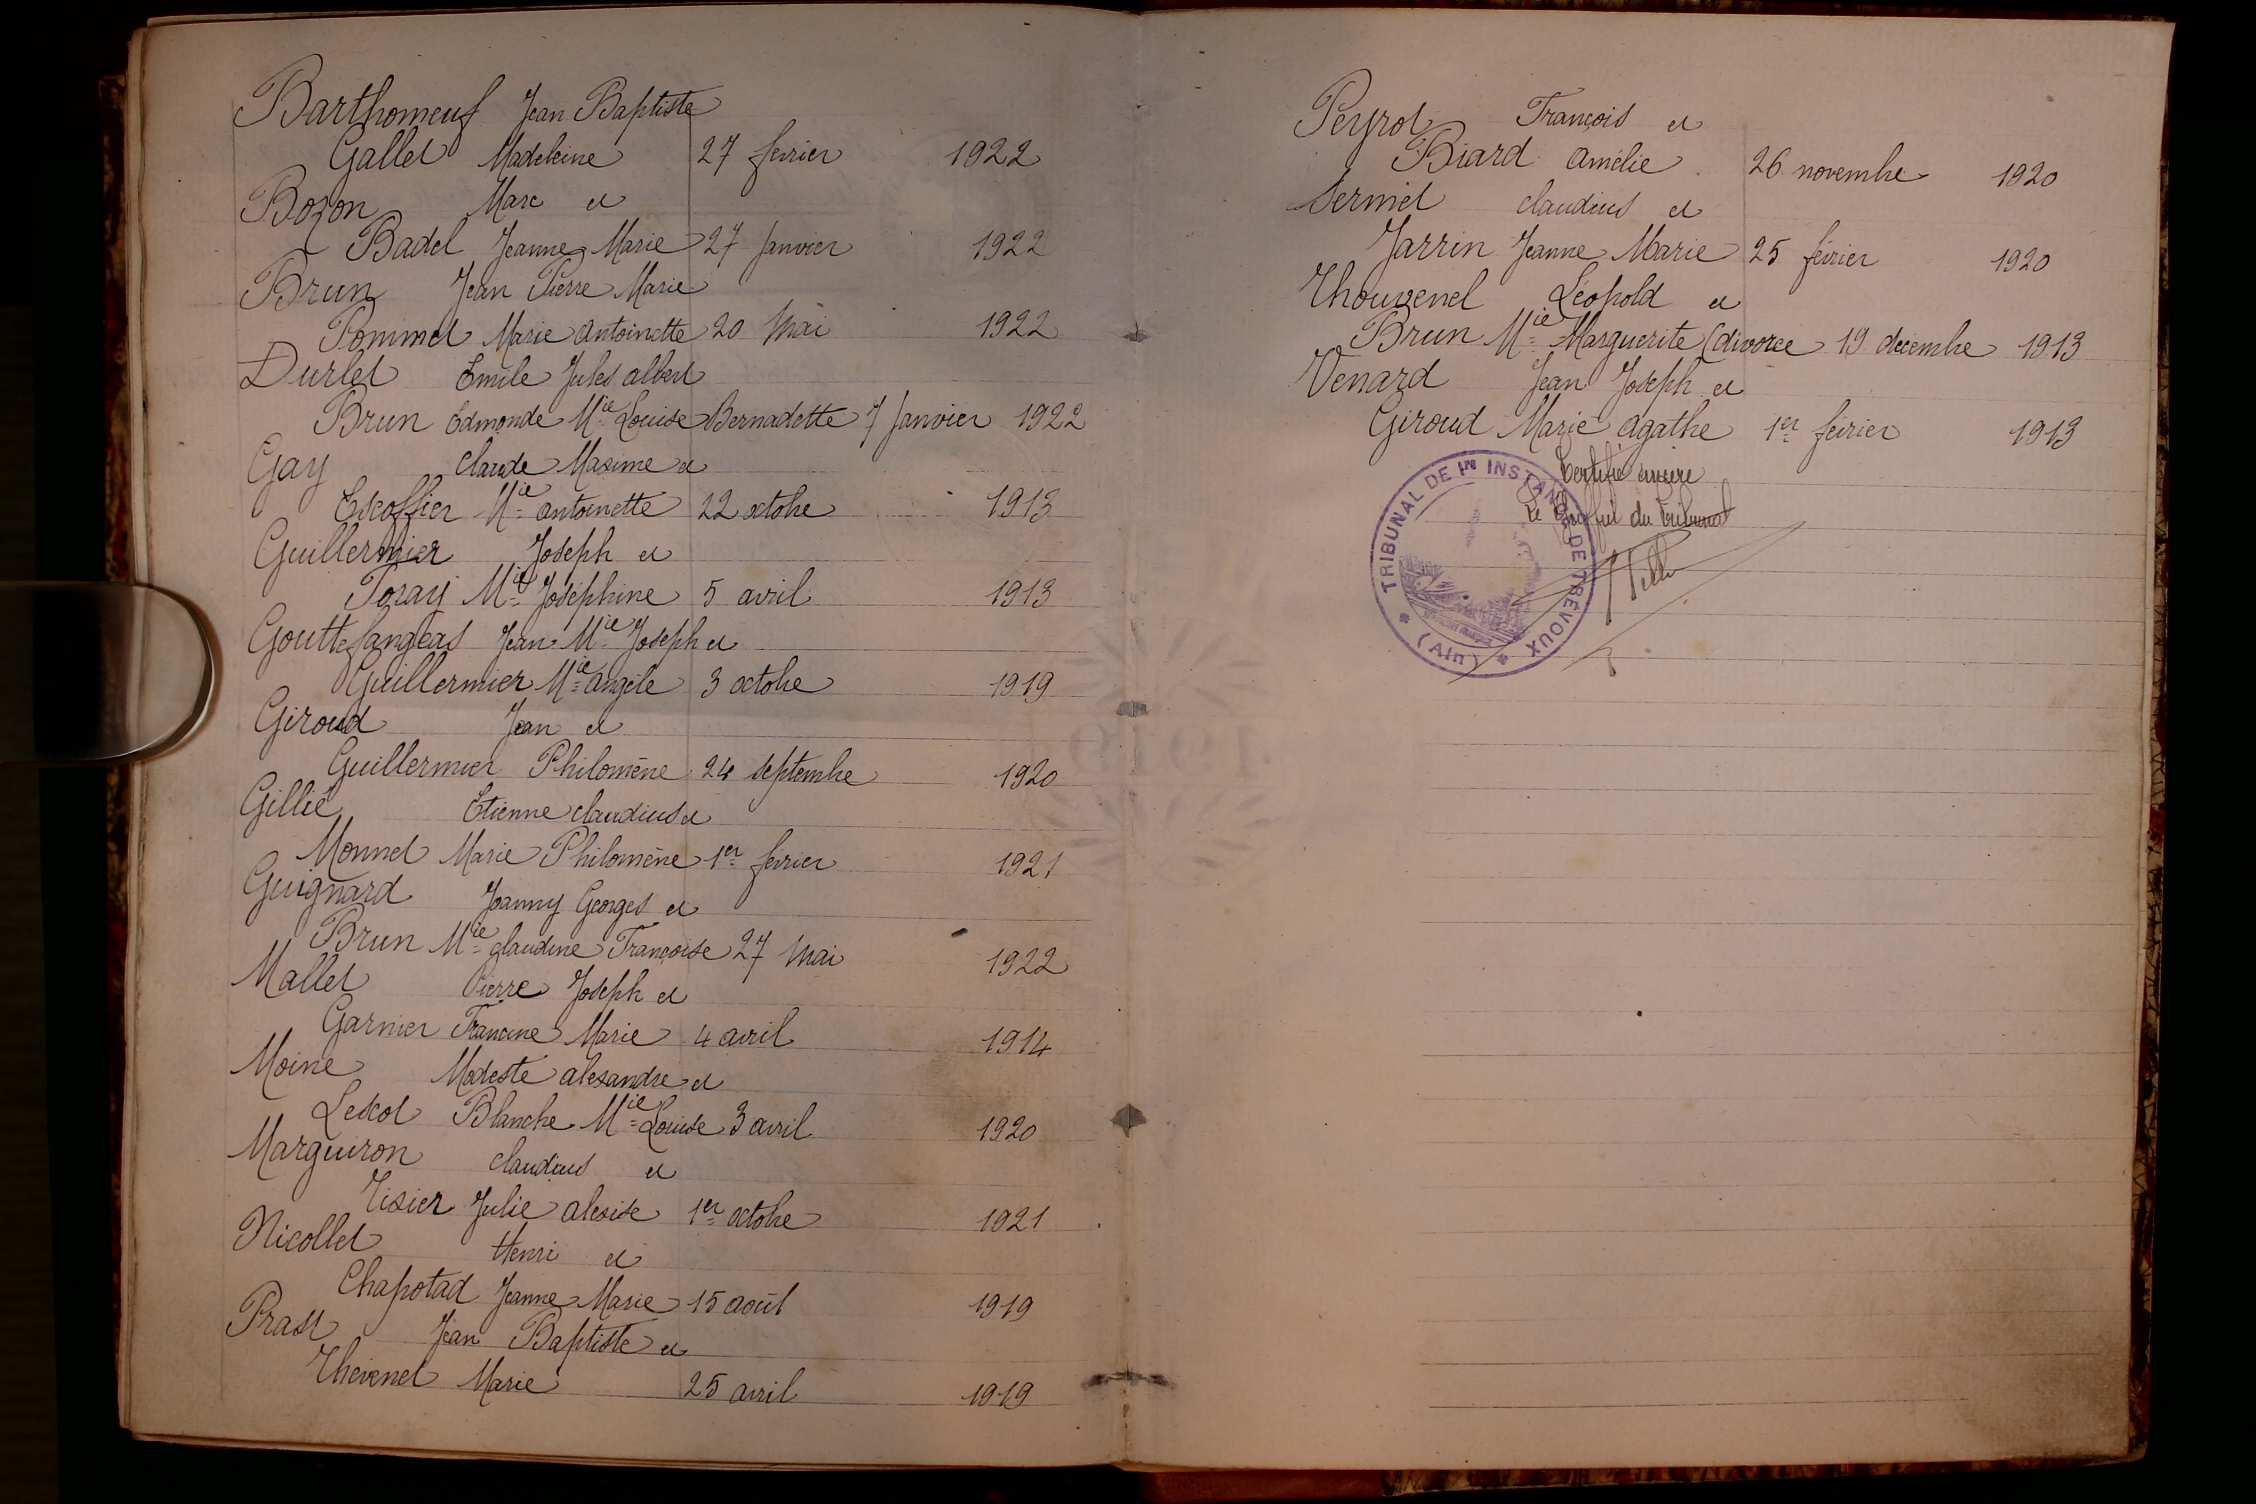 Barthomeuf Jean Baptiste
Gallet Madeleine 27 février 1922
Bozon Marc et
Badel Jeanne Marie 27 Janvier 1922
Brun Jean Pierre Marie
Pommet Marie Antoinette 20 Mai 1922
Durlet Emile Jules Albert
Brun Edmonde Mie Louise Bernadette 7 Janvier 1922
Gay Claude Maxime et
Escoffier Mie Antoinette 22 octobre 1913
Guillermier Joseph et
Foray Mie Joséphine 5 avril 1913
Gouttefangeas Jean Mie Joseph et
Guillermier Mie Angèle 3 octobre 1919
Giroud Jean et
Guillermier Philomène 24 septembre 1920
Gillié Etienne Claudius et
Monnet Marie Philomène 1er février 1921
Guignard Joanny Georges et
Brun Mie Claudine Françoise 27 Mai 1922
Mallet Pierre Joseph et
Garnier Francine Marie 4 avril 1914
Moine Modeste Alexandre et
Lescot Blanche Mie Louise 3 avril 1920
Marguiron Claudius et
Tisier Julie 1er octobre 1921
Nicollet Henri et
Chapotad Jeanne Marie 15 août 1919
Prast Jean Baptiste et
Thévenet Marie 25 avril 1919
Peyrot François et
Biard Amélie 26 novembre 1920
Sermet Claudius et
Jarrin Jeanne Marie 25 février 1920
Thouvenel Léopold et
Brun Mie Marguerite (divorce 19 décembre 1913
Venard Jean Joseph et
Giroud Marie Agathe 1er février 1913
Certifié sincère
Le Greffier du Tribunal
TRIBUNAL DE 1re INSTANCE DE TRÉVOUX
* (Ain) *
1919